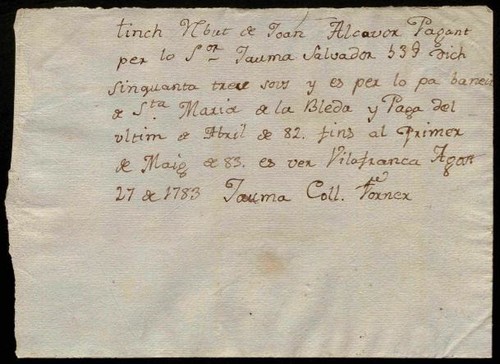 tinch Rbut de Joan Alcavor Pagant
per lo Sor Jauma Salvador 53 dich
sinquanta trese sous y es per lo pa
de Sta Maria de la Bleda y Paga del
ultim de Abril de 82. fins al Primer
de Maig de 83. es ver Vilafranca Agost
27 de 1783 Jauma Coll. Forner